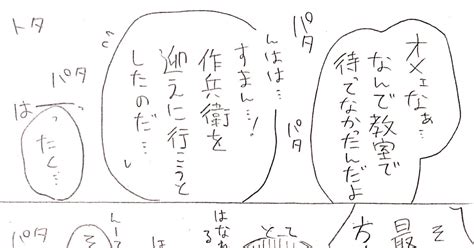 オメェなぁ…
なんで教室で
待てなかったんだよ
パタ
パタ
んはは…
すまん…!
作兵衛を
迎えに行こうと
したのだ…
トタ
パタ
はーっ
たく…
そ
最
方
とて
はなれ
る
は
んーて
そ
パタ